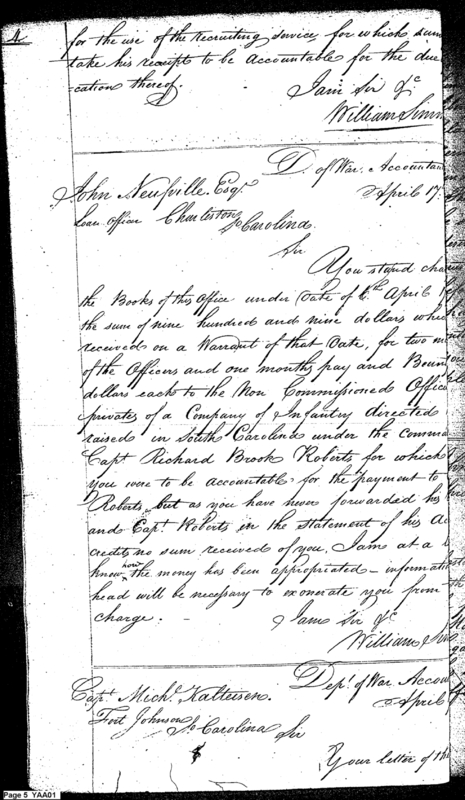 4
for the use of the recruiting service for which sum
take his receipt to be accountable for the due
cation thereof.
I am Sir &c
William Simm
D. of War. Accountan
April 17.
John Neufville. Esqr.
Loan Officer Charleston
So Carolina.
Sir
You stand cha
the Books of this Office under Date of 6th April
the sum of nine hundred and nine dollars whi
received on a Warrant of that Date, for two m
of the Officers and one months pay and Boun
dollars each to the Non Commissioned Offic
privates of a Company of Infantry directed
raised in South Carolina under the comma
Capt Richard Brook Roberts for which
you were to be accountable for the payment to
Roberts, but as you have never forwarded his
and Capt Roberts in the statement of his Ac
credits no sum received of you, I am at a
know how the money has been appropriated - informati
head will be necessary to exonerate you from
charge.
I am Sir &c
William Sim
Dept. of War Accou
April
Capt. Michl. Kalteisen.
Fort Johnson
So Carolina
Sir
Your letter of th
Page 5 YAA01